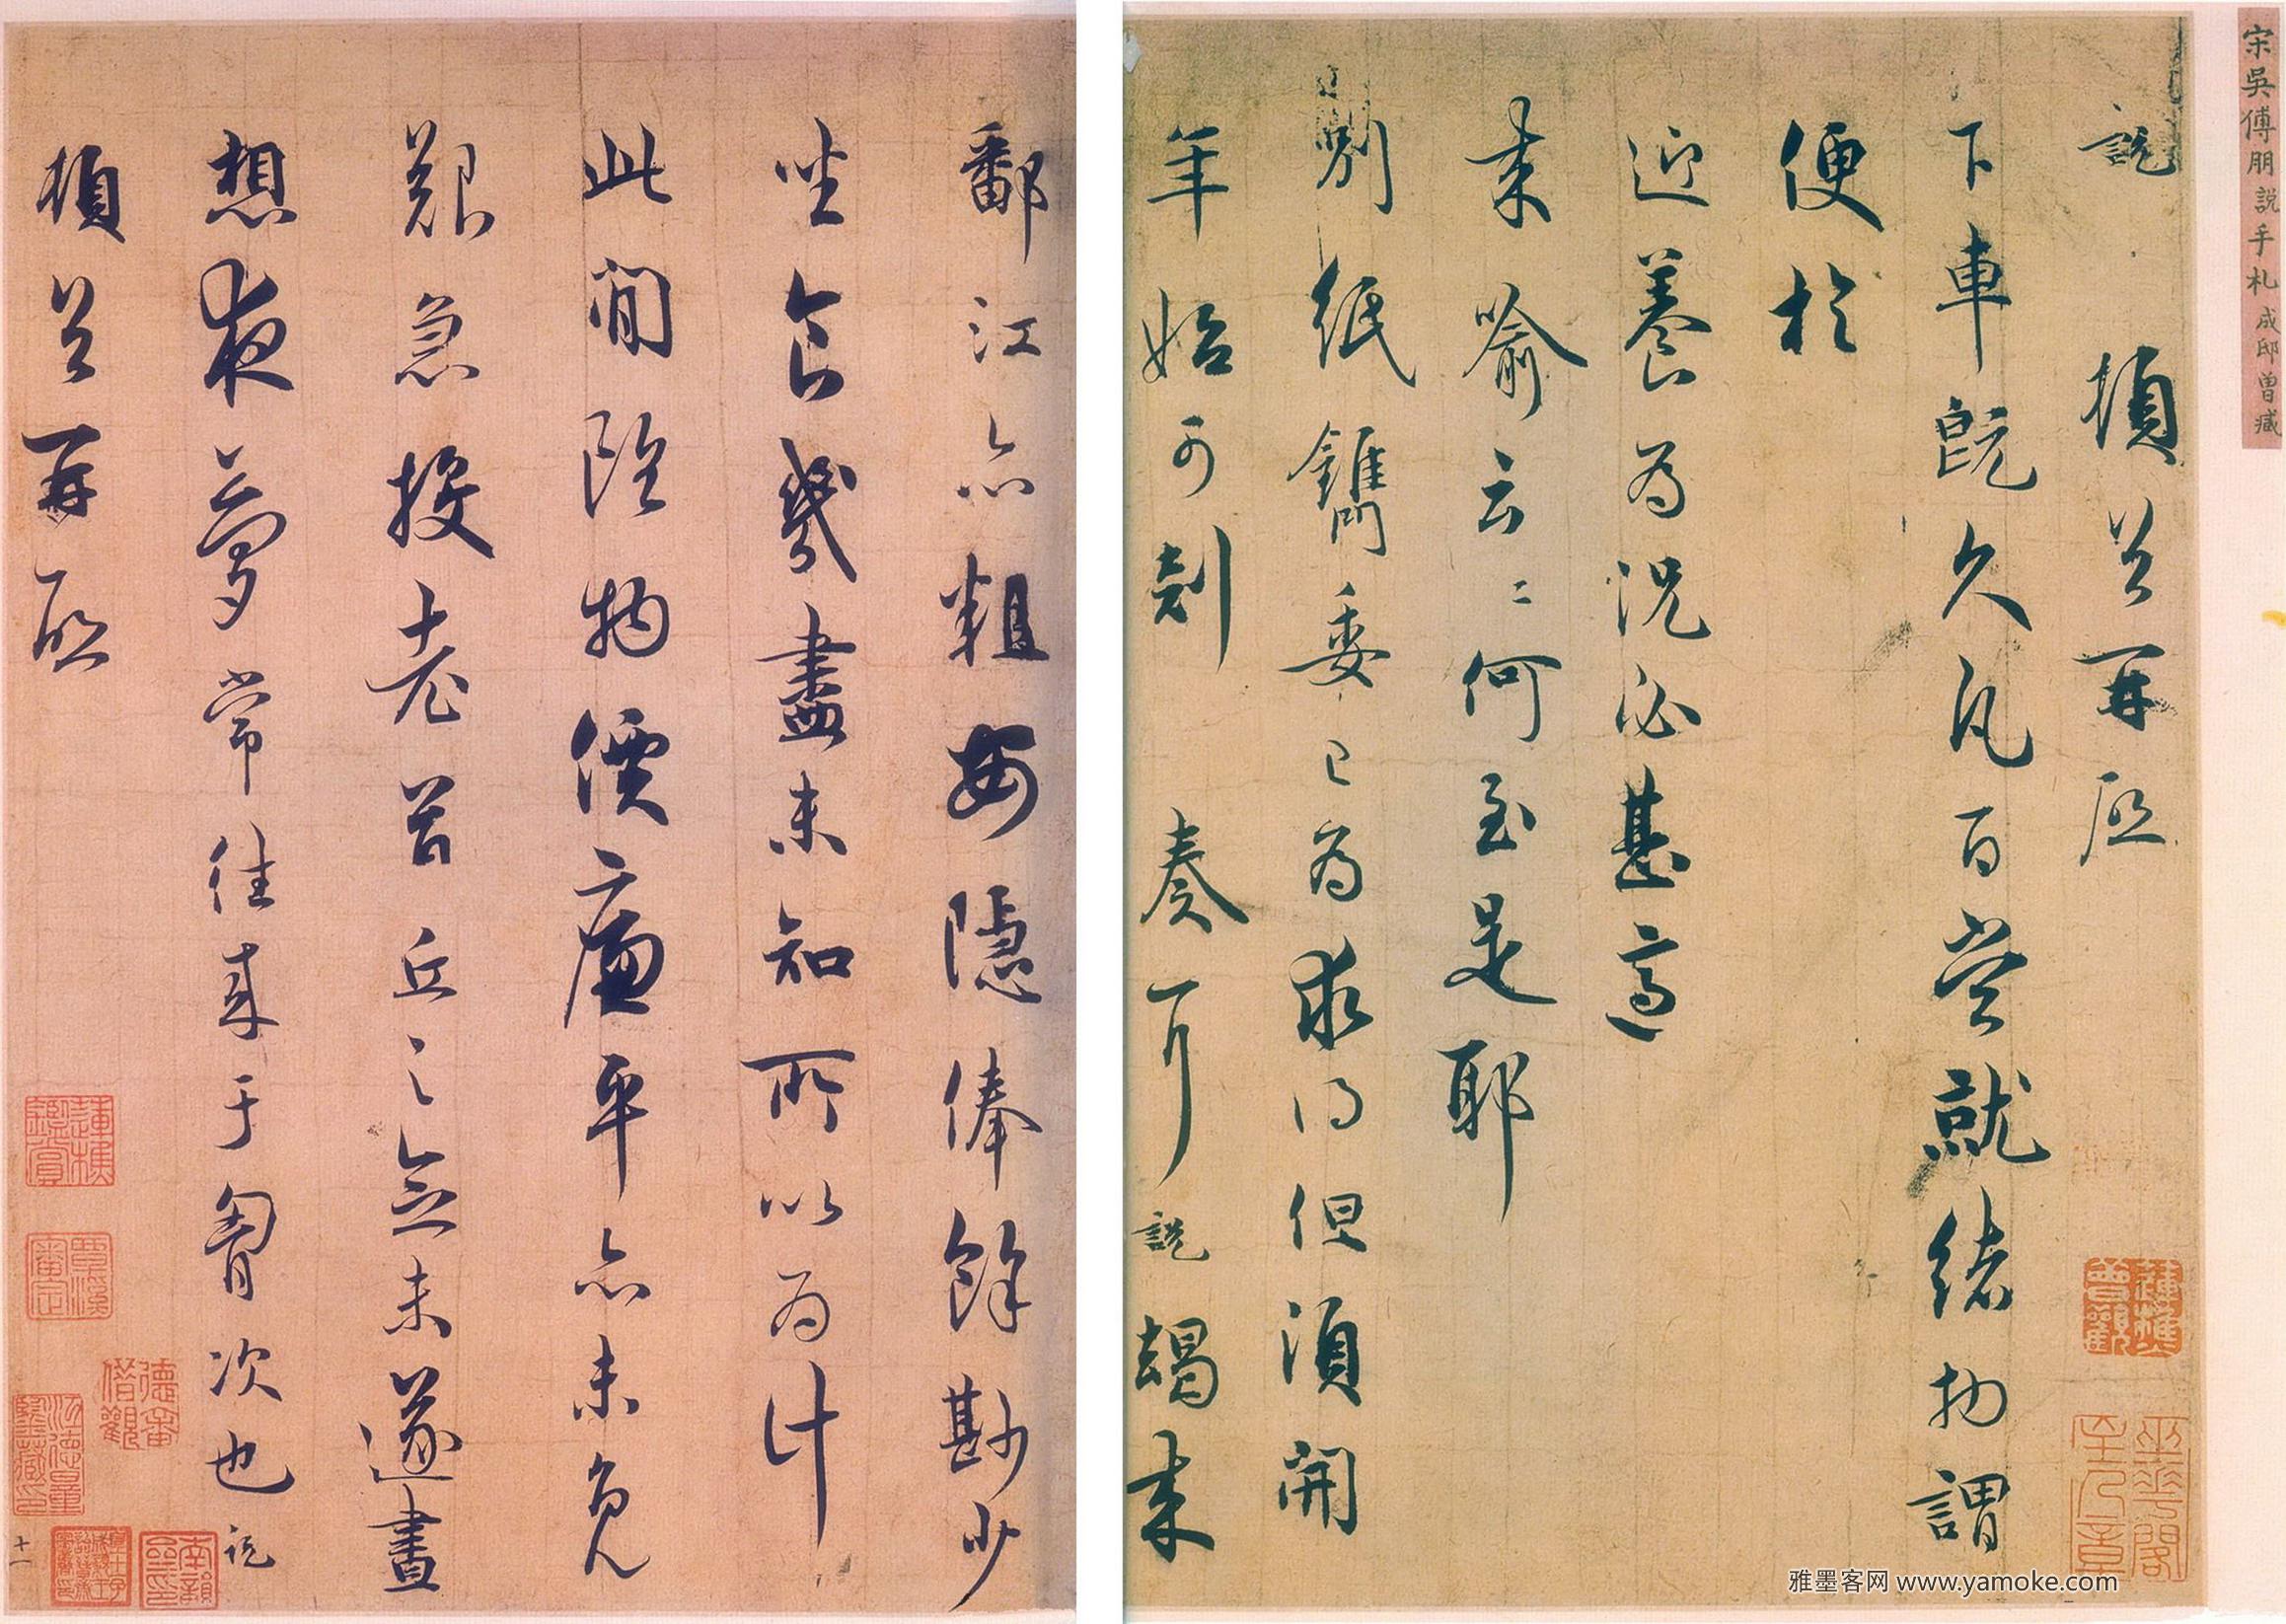 宋吳傅朋說手札 成邸曾藏
說 頓首再啟
下車既久凡百當就緒物謂
便於
迎養為況必甚適
來喻云〻何至是耶
別紙鐫委已為求得但須開
年始可剞 奏下說朅來
鄱江亦粗安隱俸餘尠少
坐食幾盡未知所以為計
此間雖物價廉平亦未免
艱急投老首丘之念未遂晝
想夜夢常往來于胷次也說
頓首再啟
十一
雅墨客网 www.yamoke.com